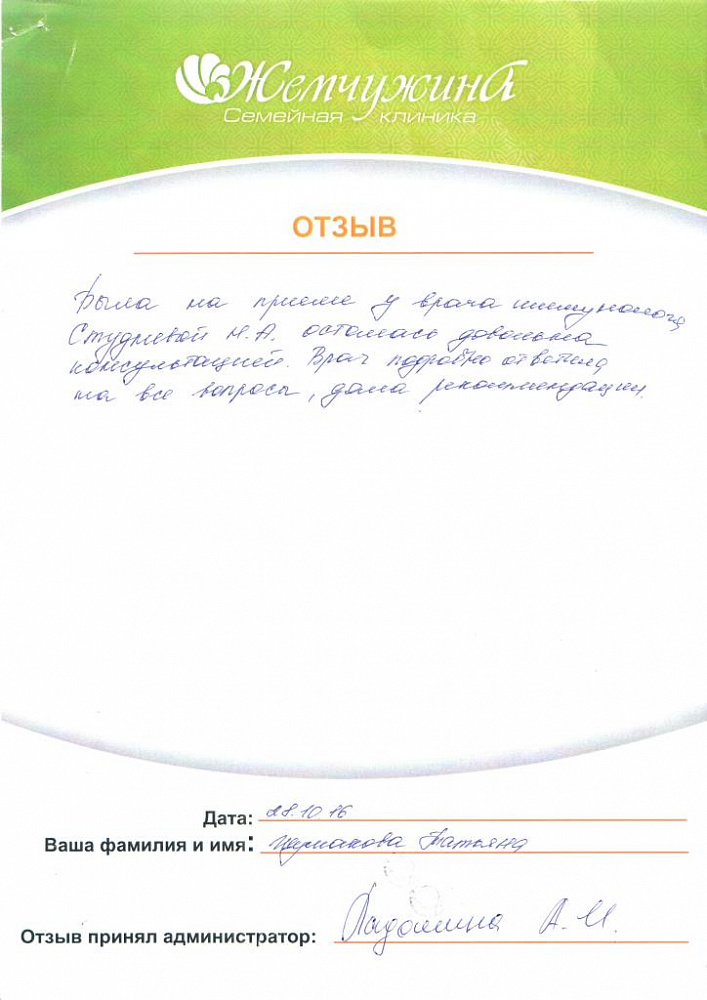 Жемчужина
Семейная клиника
ОТЗЫВ
Была на приеме у врача иммунолога
Студневой Н.А. осталась довольна
консультацией. Врач подробно ответила
на все вопросы, дала рекомендации.
Дата: 28.10.16
Ваша фамилия и имя: Татьяна
Отзыв принял администратор: А.И.